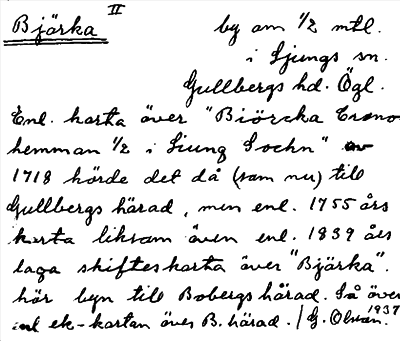 Bjärka II by om 1/2 mtl.
i Ljungs sn.
Gullbergs hd. Ögl.
Enl. karta över "Biörcka Crono
hemman 1/2 i Liung Sochn" av
1718 hörde det då (som nu) till
Gullbergs härad, men enl. 1755 års
karta liksom även enl. 1839 års
laga skifteskarta över "Bjärka".
hör byn till Bobergs härad. Så även
enl ek-kartan över B. härad. / G. Olson. 1937